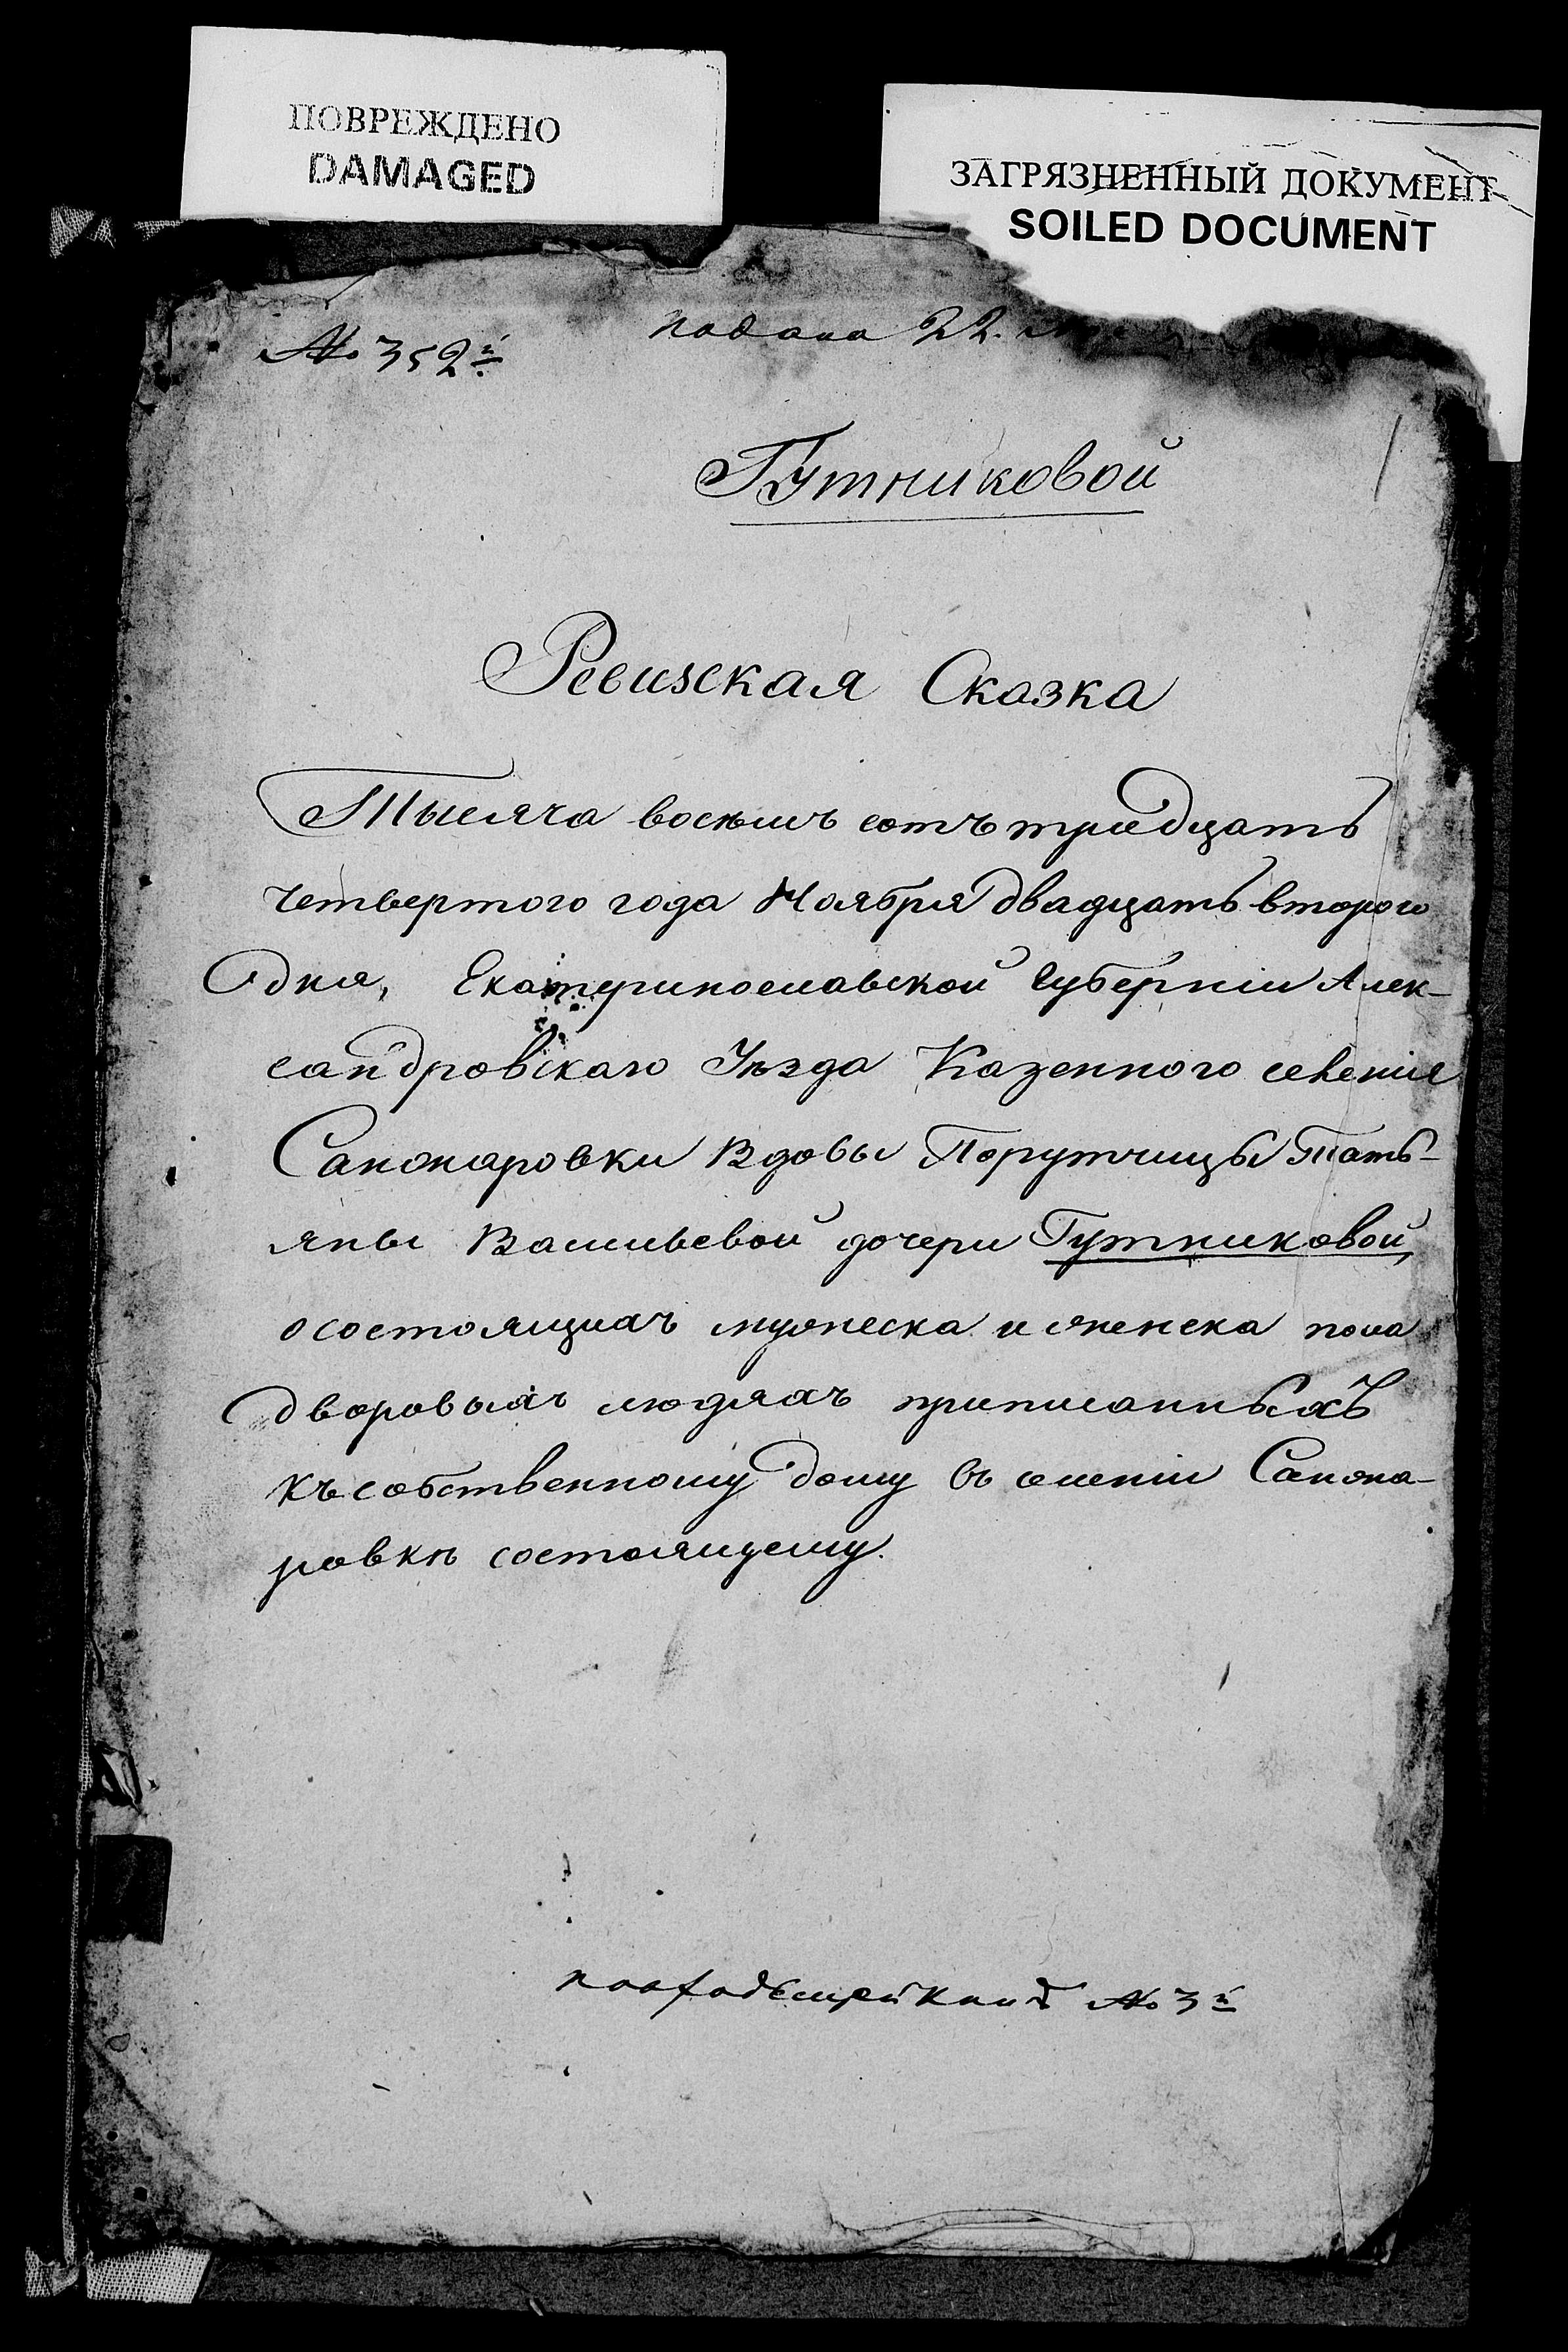 ПОВРЕЖДЕНО
DAMAGED
ЗАГРЯЗНЕННЫЙ ДОКУМЕНТ
SOILED DOCUMENT
№ 352й
подана 22.
Гутниковой
Ревизская Сказка
Тысяча восемь сотъ тридцать
четвертого года Ноября двадцать второго
дня, Екатеринославской Губерніи Алек-
сандровскаго Уѣзда Казенного селенія
Санжаровки Вдовы Порутчицы Тать-
яны Васильевой дочери Гутниковой,
о состоящихъ мужеска и женска пола
дворовыхъ людяхъ приписанныхъ
къ собственному дому въ селеніи Санжа-
ровкѣ состоящему.
книг № 3й